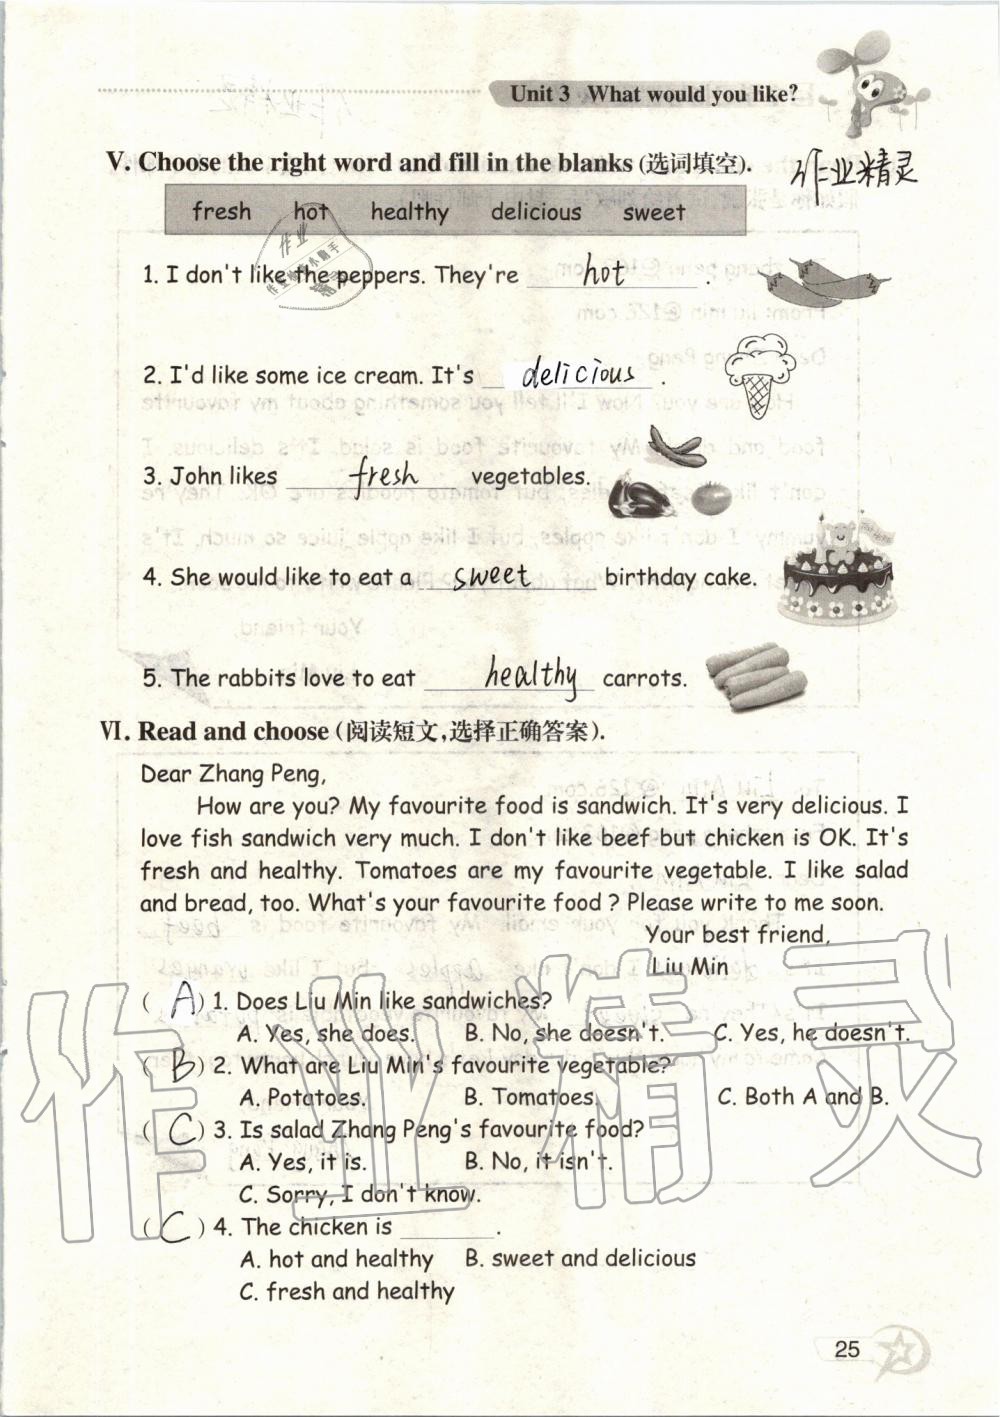 Unit 3 What would you like?
V. Choose the right word and fill in the blanks (选词填空).
作业精灵
fresh hot healthy delicious sweet
1. I don't like the peppers. They're hot .
2. I'd like some ice cream. It's delicious .
3. John likes fresh vegetables.
4. She would like to eat a sweet birthday cake.
5. The rabbits love to eat healthy carrots.
Ⅵ. Read and choose (阅读短文,选择正确答案).
Dear Zhang Peng,
How are you? My favourite food is sandwich. It's very delicious. I
love fish sandwich very much. I don't like beef but chicken is OK. It's
fresh and healthy. Tomatoes are my favourite vegetable. I like salad
and bread, too. What's your favourite food ? Please write to me soon.
Your best friend,
Liu Min
( A ) 1. Does Liu Min like sandwiches?
A. Yes, she does. B. No, she doesn't. C. Yes, he doesn't.
( B ) 2. What are Liu Min's favourite vegetable?
A. Potatoes. B. Tomatoes. C. Both A and B.
( C ) 3. Is salad Zhang Peng's favourite food?
A. Yes, it is. B. No, it isn't.
C. Sorry, I don't know.
( C ) 4. The chicken is ______ .
A. hot and healthy B. sweet and delicious
C. fresh and healthy
作业精灵
25